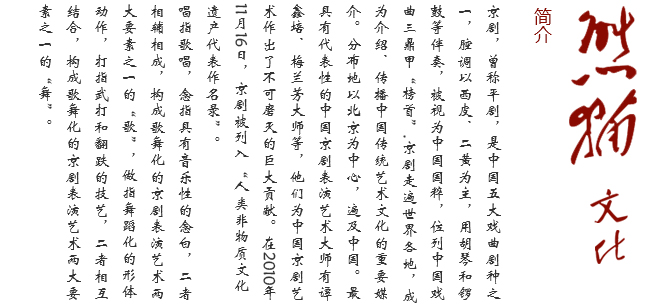 熊猫
文化
简介
京剧，曾称平剧，是中国五大戏曲剧种之
一，腔调以西皮、二黄为主，用胡琴和锣
鼓等伴奏，被视为中国国粹，位列中国戏
曲三鼎甲“榜首”.京剧走遍世界各地，成
为介绍、传播中国传统艺术文化的重要媒
介。分布地以北京为中心，遍及中国。最
具有代表性的中国京剧表演艺术大师有谭
鑫培、梅兰芳大师等，他们为中国京剧艺
术作出了不可磨灭的巨大贡献。在2010年
11月16日，京剧被列入“人类非物质文化
遗产代表作名录”。
唱指歌唱，念指具有音乐性的念白，二者
相辅相成，构成歌舞化的京剧表演艺术两
大要素之一的“歌”，做指舞蹈化的形体
动作，打指武打和翻跌的技艺，二者相互
结合，构成歌舞化的京剧表演艺术两大要
素之一的“舞”。